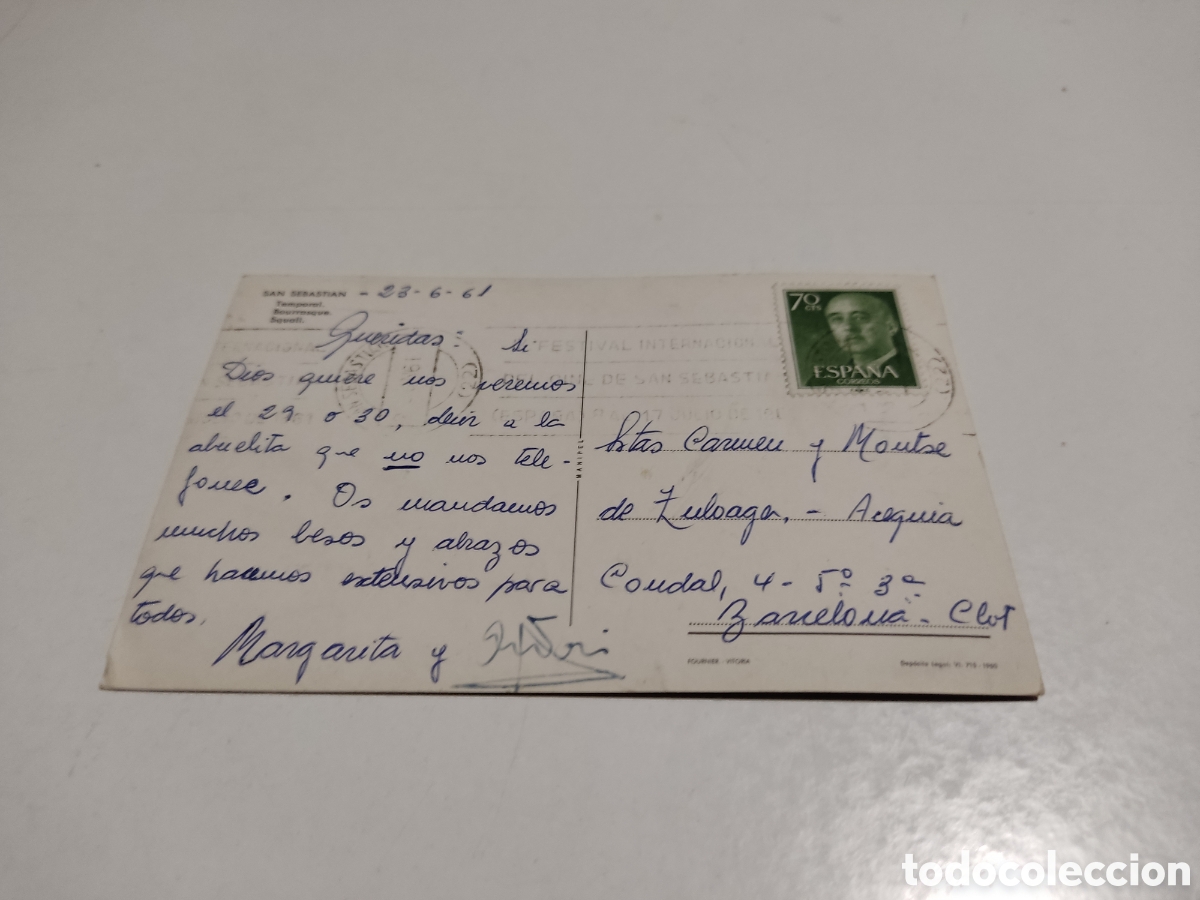 SAN SEBASTIAN - 23-6-61
Temporal.
Bourrasque.
Squall.
Queridas: Si
Dios quiere nos veremos
el 29 o 30, decir a la
abuelita que no nos tele-
fonee. Os mandamos
muchos besos y abrazos
que hacemos extensivos para
todos.
Margarita y
MANIPEL
FESTIVAL INTERNACIONAL
DEL CINE DE SAN SEBASTIAN
JULIO DE 1961
70
CTS
ESPAÑA
CORREOS
Srtas Carmen y Montse
de Zuloaga, - Acequia
Condal, 4 - 5º 3ª
Barcelona - Clot
FOURNIER - VITORIA
Depósito Legal: VI.
todocoleccion